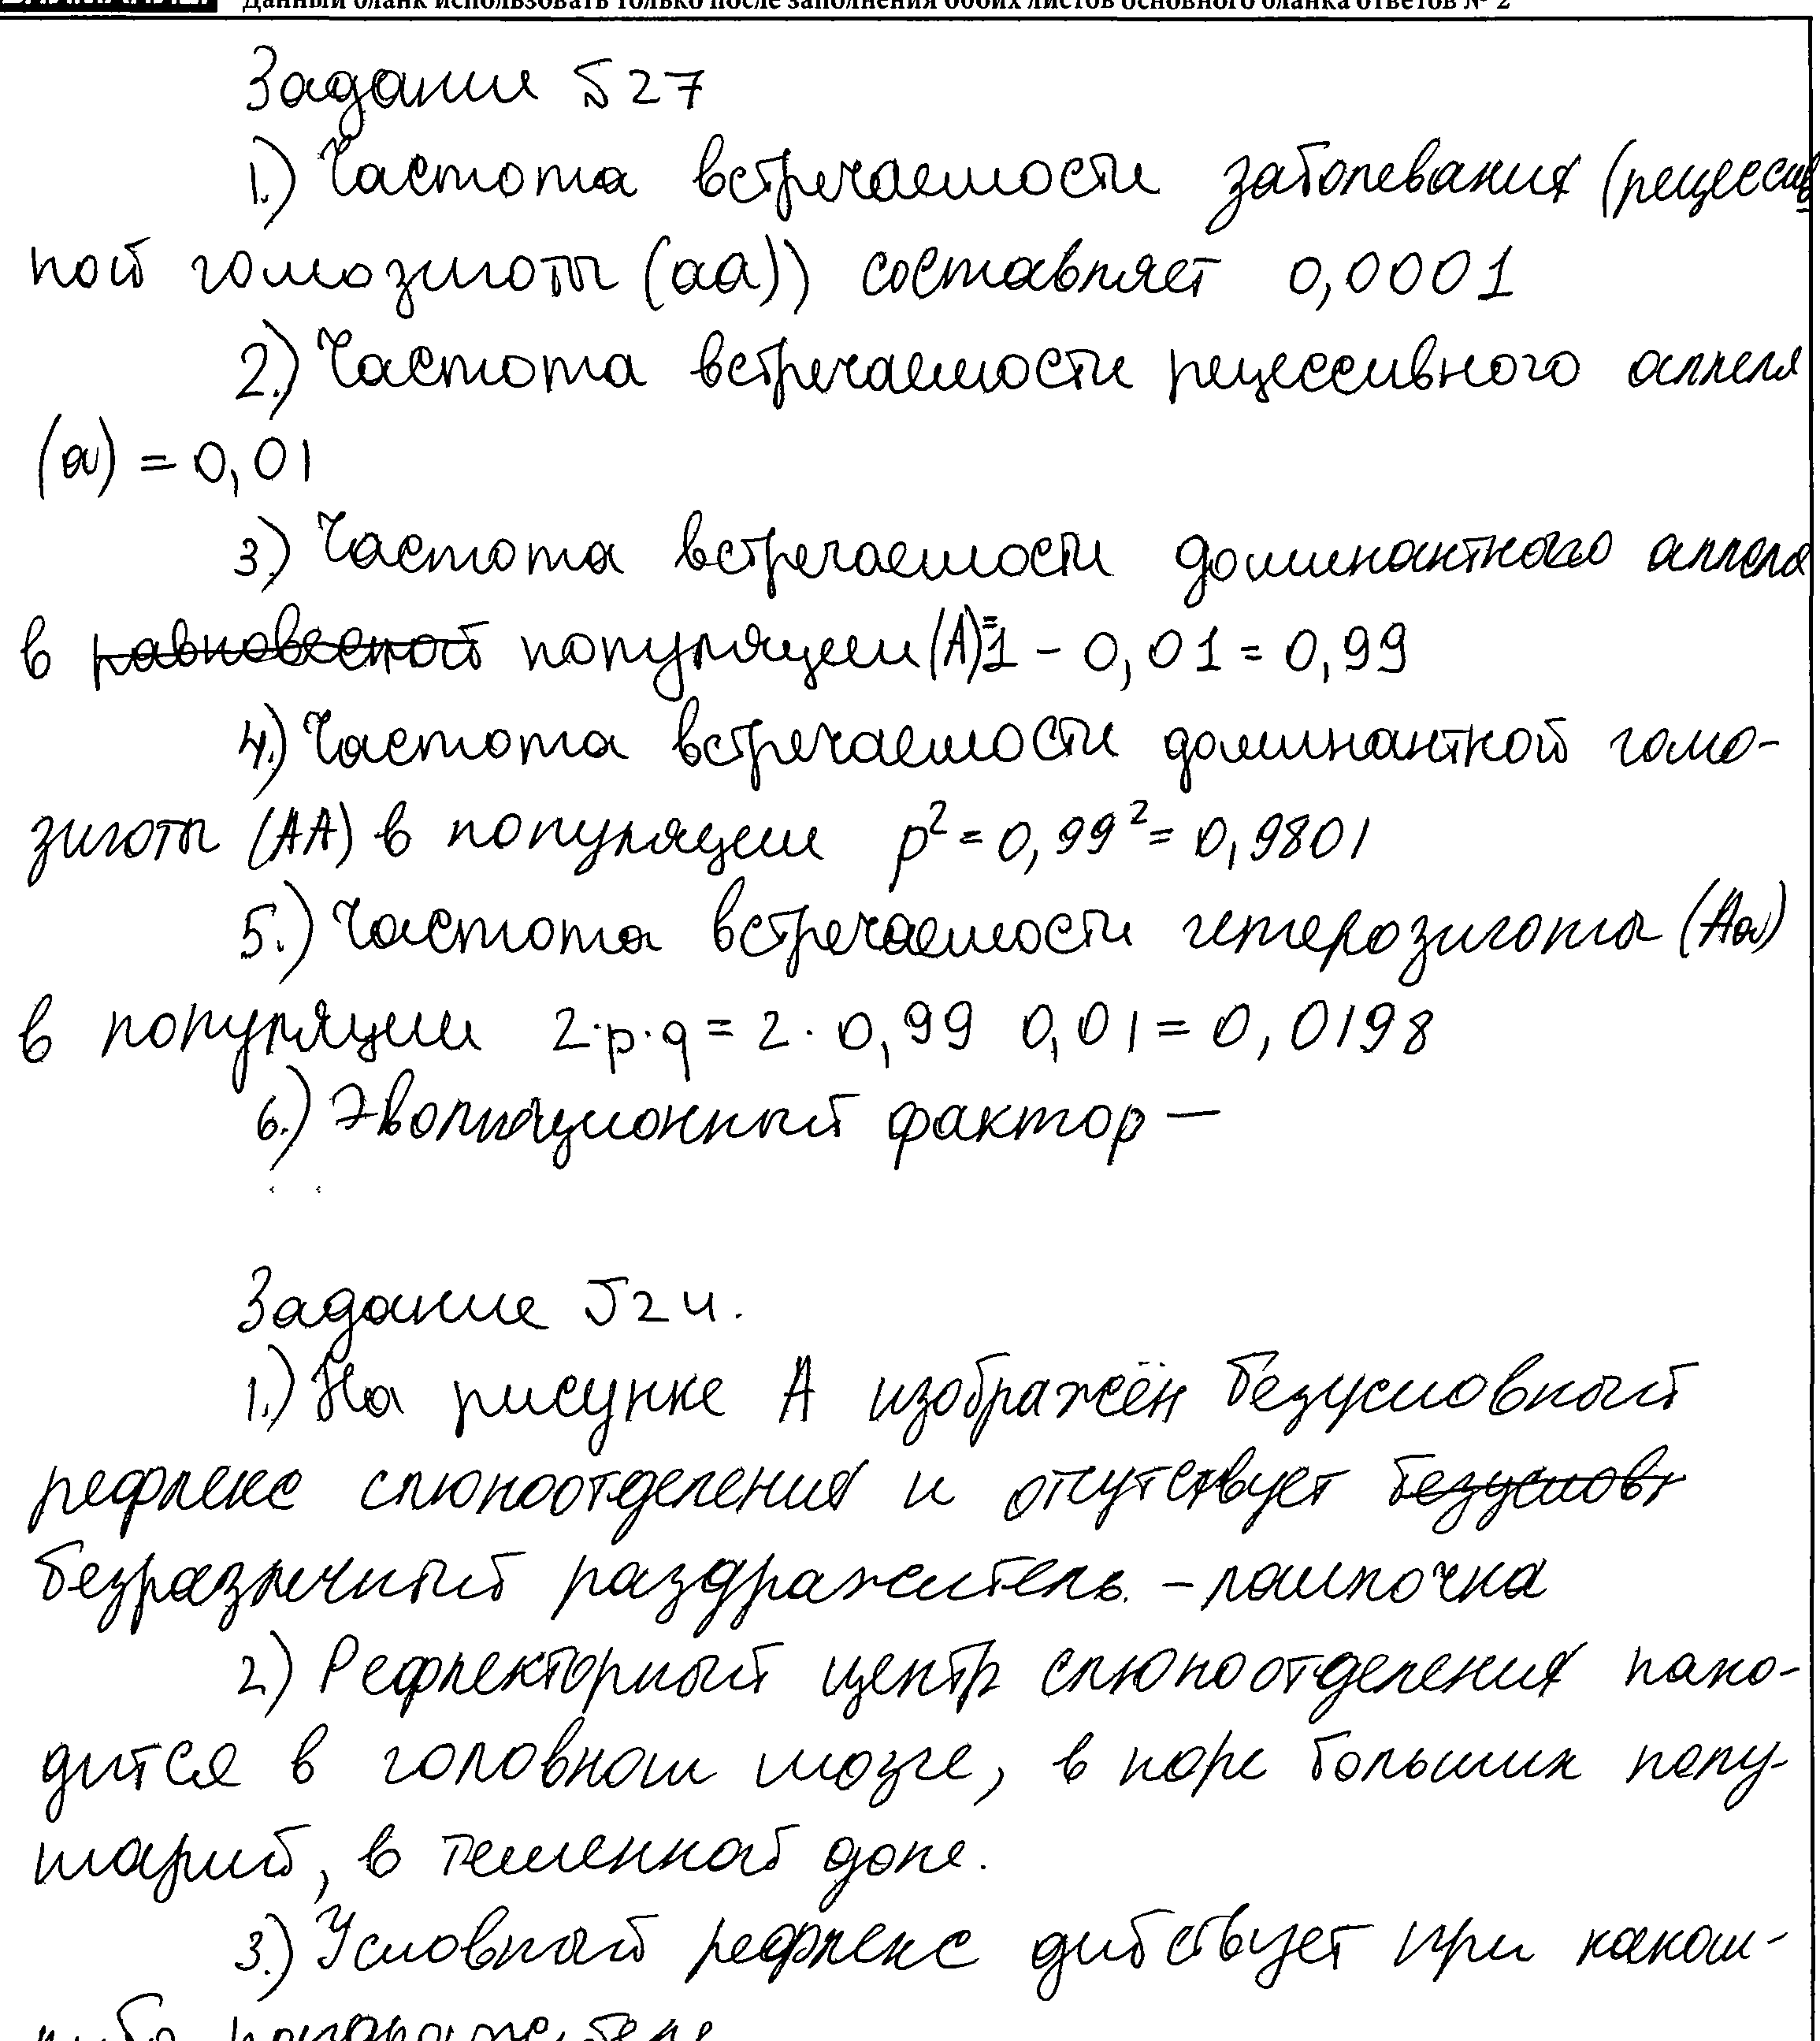 Данный бланк использовать только после заполнения обоих листов основного бланка ответов № 2
Задание №27
1.) Частота встречаемости заболевания (рецессив
ной гомозиготы (аа)) составляет 0,0001
2.) Частота встречаемости рецессивного аллеля
(а) = 0,01
3.) Частота встречаемости доминантного аллеля
в равновесной популяции (А) = 1 - 0,01 = 0,99
4.) Частота встречаемости доминантной гомо-
зиготы (АА) в популяции p² = 0,99² = 0,9801
5.) Частота встречаемости гетерозиготы (Аа)
в популяции 2·p·q = 2 · 0,99 0,01 = 0,0198
6.) Эволюционный фактор —
Задание №24.
1.) На рисунке А изображён безусловный
рефлекс слюноотделения и отсутствует
безразличный раздражитель. - лампочка
2.) Рефлекторный центр слюноотделения нахо-
дится в головном мозге, в коре больших полу-
шарий, в теменной доле.
3.) Условный рефлекс действует при каком-